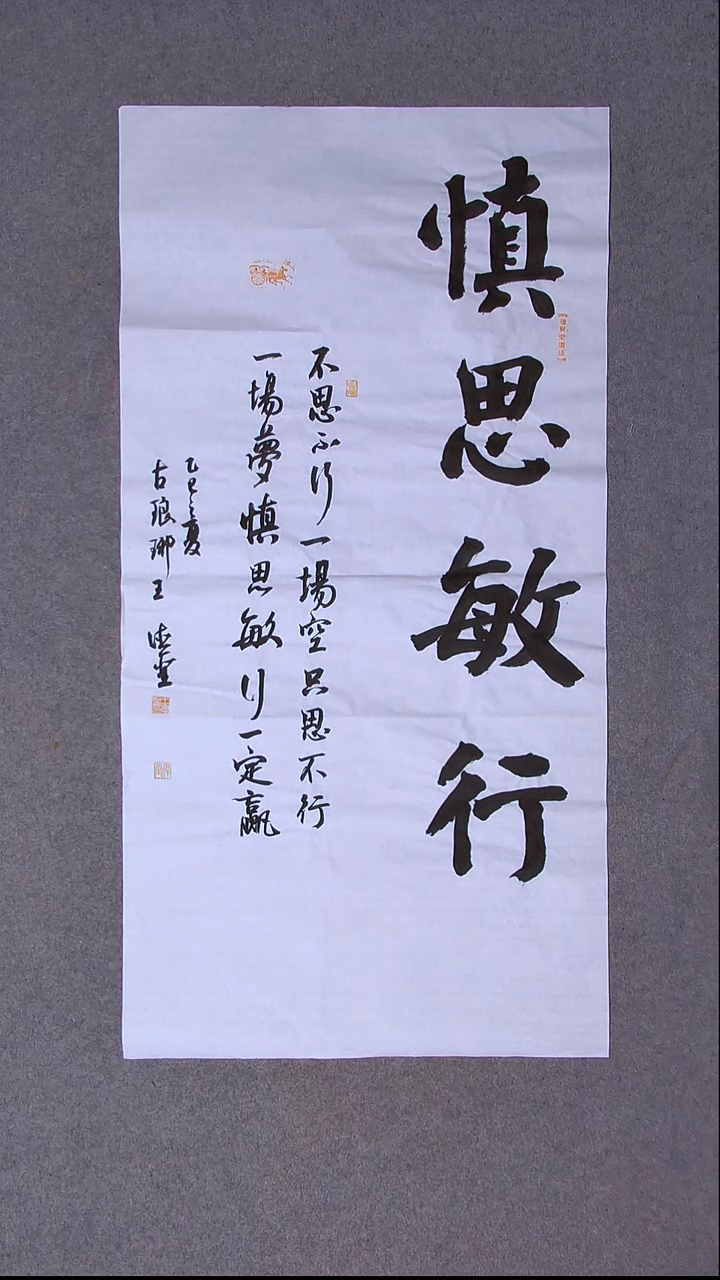 慎思敏行
不思不行一場空只思不行
一場夢慎思敏行一定贏
乙巳之夏
古琅琊王